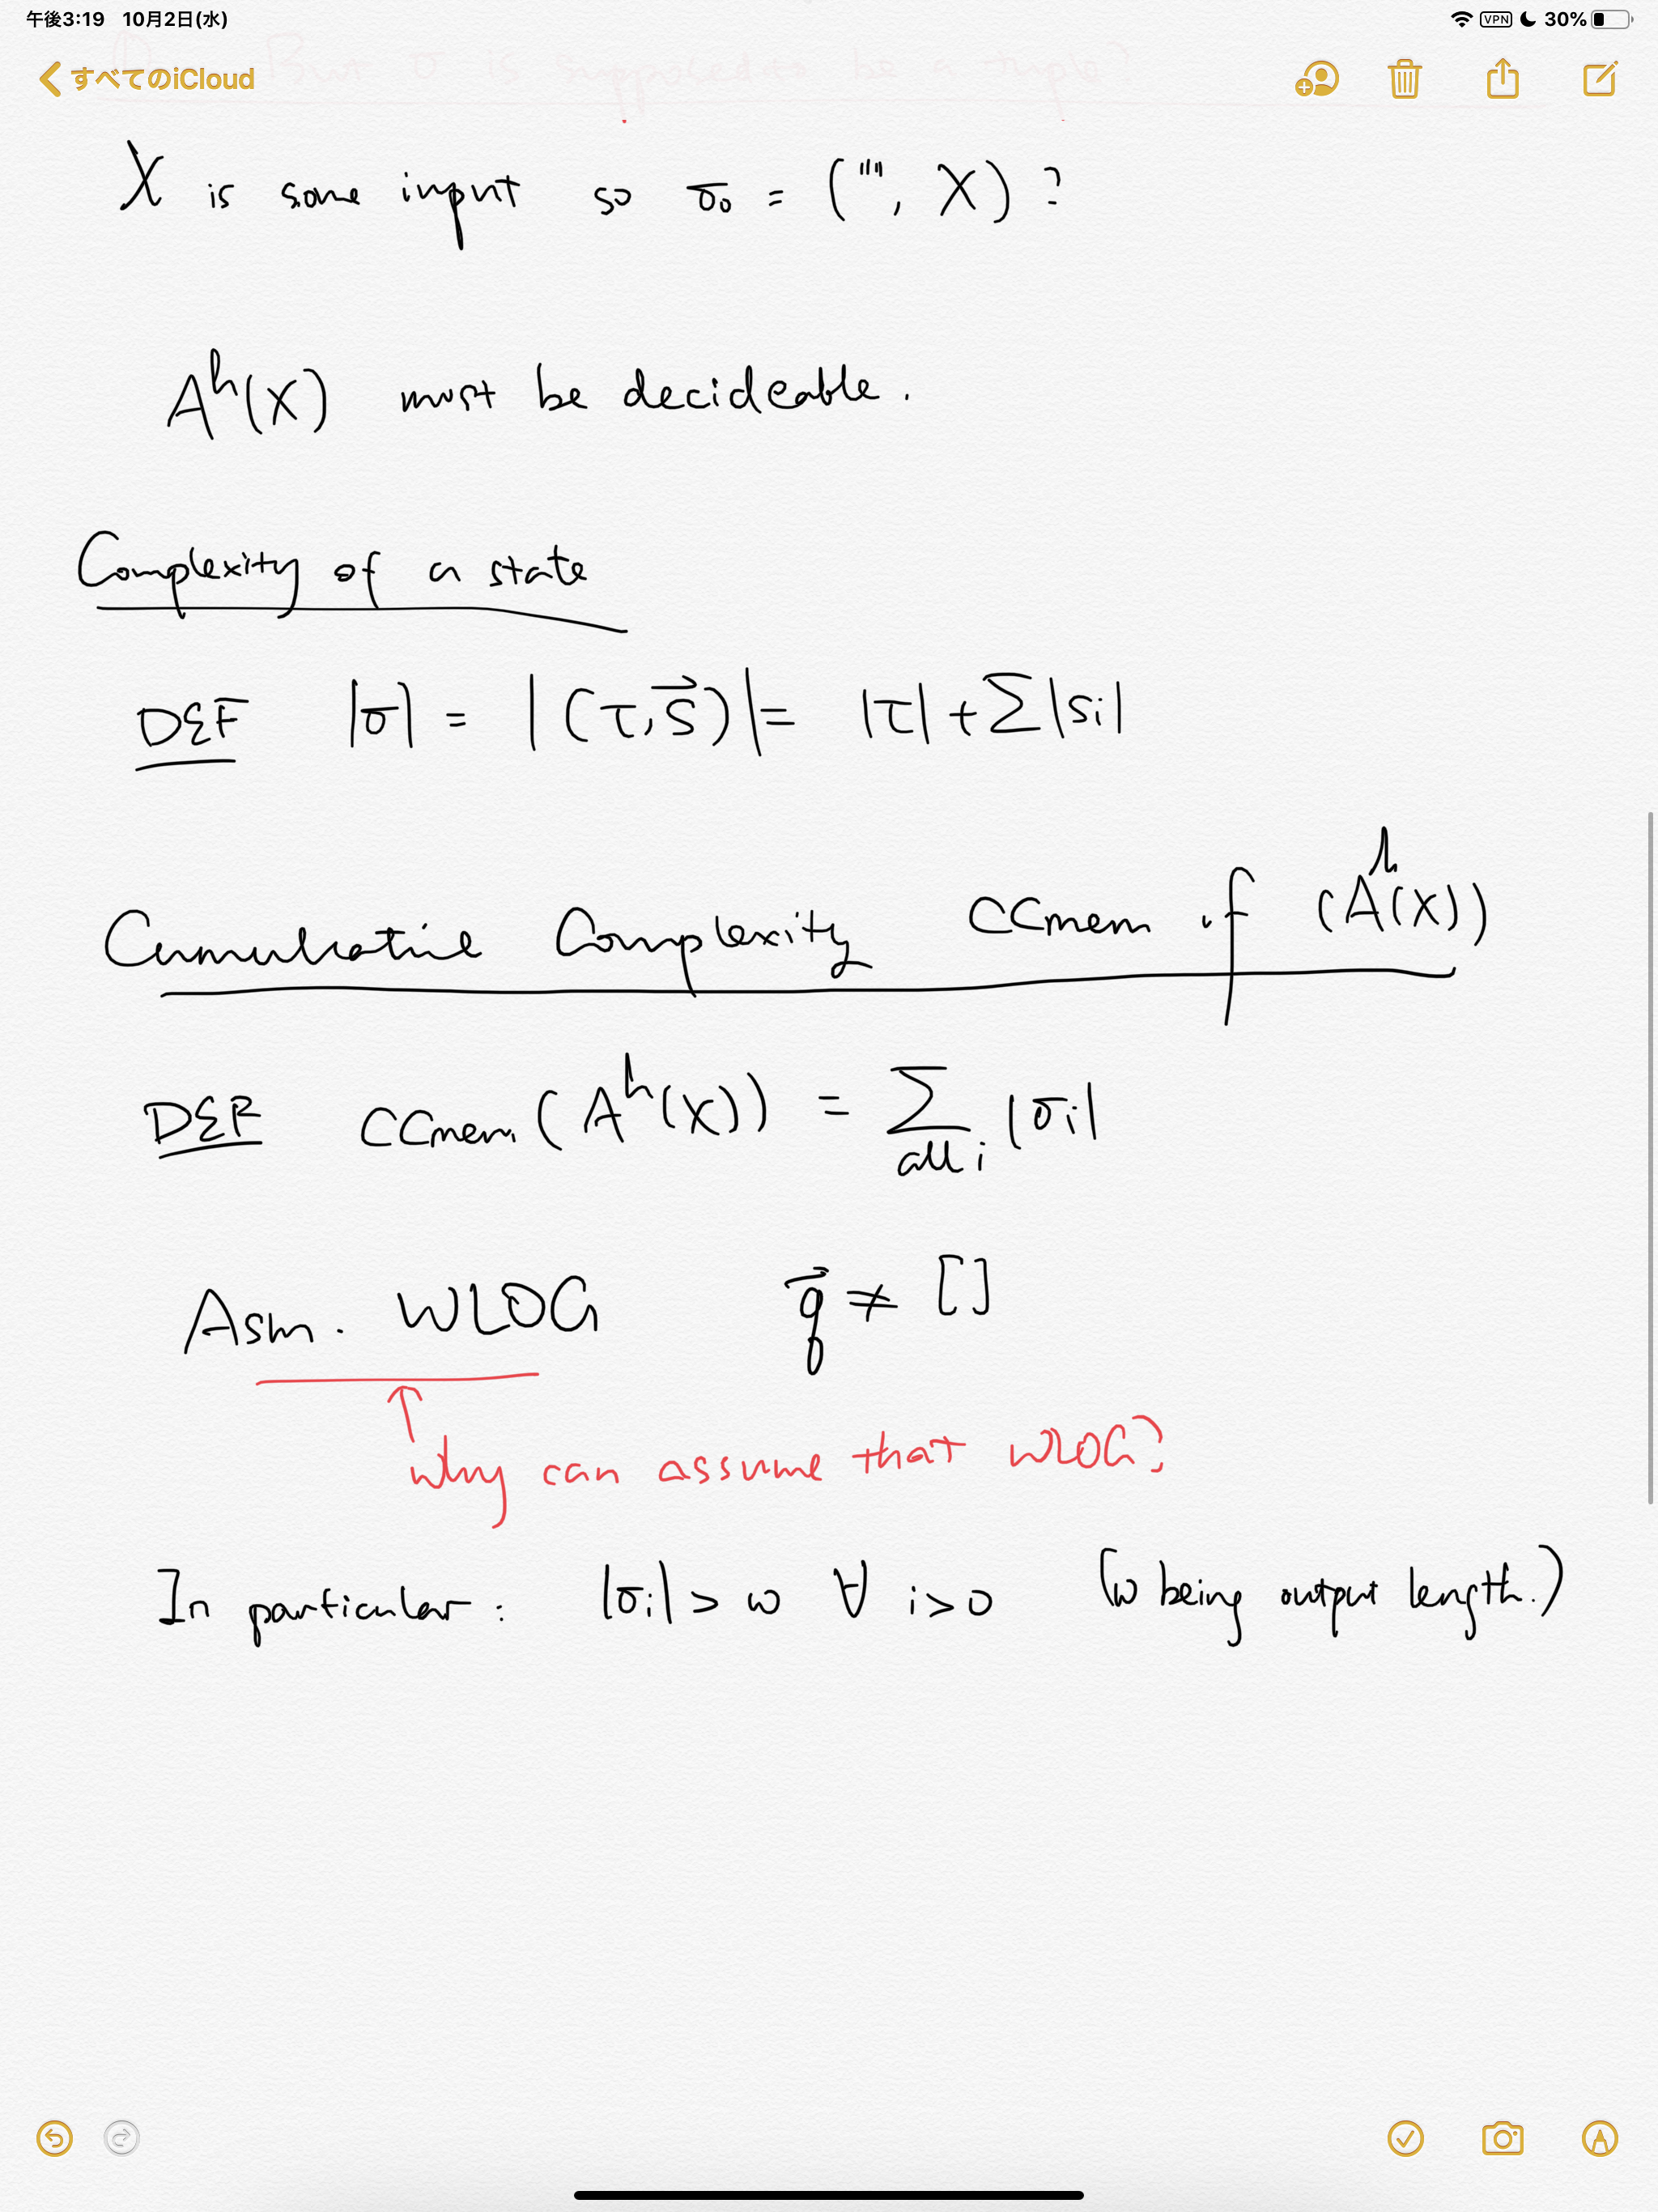 午後3:19 10月2日(水) VPN 30%
すべてのiCloud
X is some input so σ₀ = ("", X) ?
Aʰ(X) must be decideable.
Complexity of a state
DEF |σ| = |(τ, s⃗)| = |τ| + Σ|si|
Cumulative Complexity CCmem of (Aʰ(X))
DEF CCmem (Aʰ(X)) = Σ all i |σi|
Asm. WLOG q⃗ ≠ []
why can assume that WLOG?
In particular: |σi| > w ∀ i>0 (w being output length.)